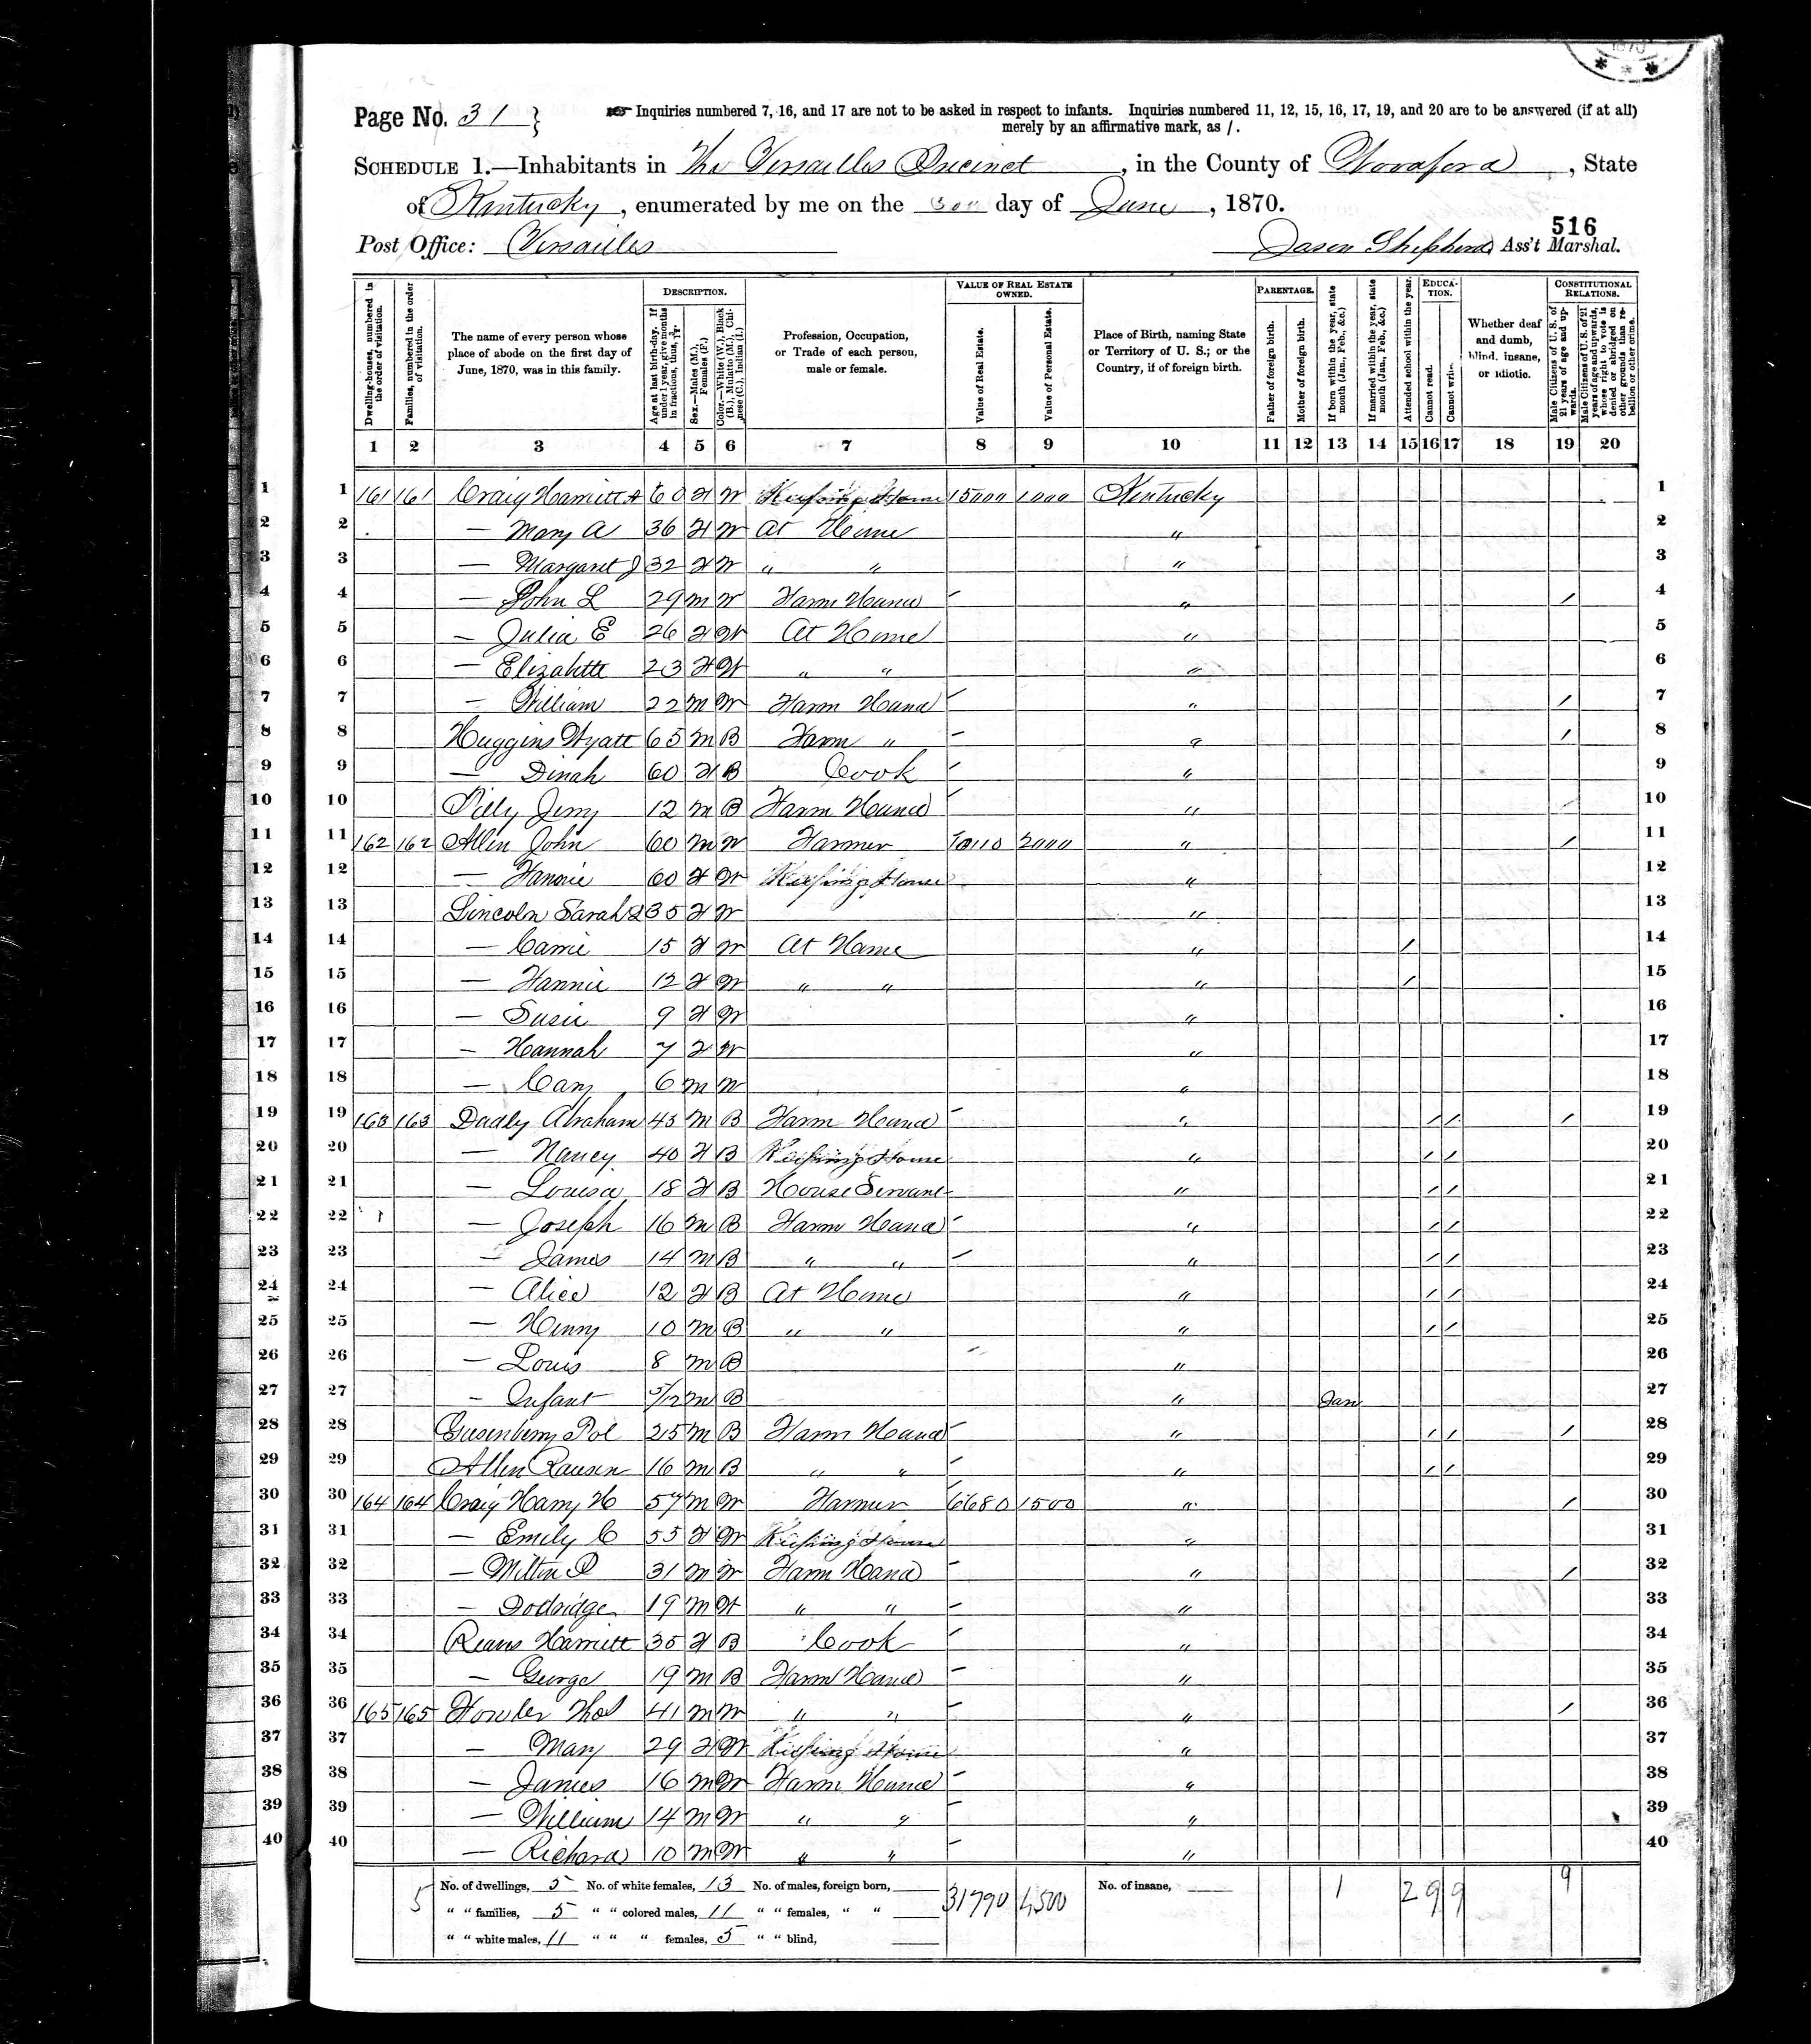 1870
* * *
Page No. 31 }
☞ Inquiries numbered 7, 16, and 17 are not to be asked in respect to infants. Inquiries numbered 11, 12, 15, 16, 17, 19, and 20 are to be answered (if at all)
merely by an affirmative mark, as /.
SCHEDULE 1.—Inhabitants in The Versailles Precinct, in the County of Woodford, State
of Kentucky, enumerated by me on the day of June, 1870.
516
Post Office: Versailles Jason Shepherd, Ass't Marshal.
Dwelling-houses, numbered in the order of visitation.
Families, numbered in the order of visitation.
The name of every person whose place of abode on the first day of June, 1870, was in this family.
DESCRIPTION.
Age at last birth-day. If under 1 year, give months in fractions, thus, 3/12.
Sex.—Males (M.), Females (F.)
Color.—White (W.), Black (B.), Mulatto (M.), Chinese (C.), Indian (I.)
Profession, Occupation, or Trade of each person, male or female.
VALUE OF REAL ESTATE OWNED.
Value of Real Estate.
Value of Personal Estate.
Place of Birth, naming State or Territory of U. S.; or the Country, if of foreign birth.
PARENTAGE.
Father of foreign birth.
Mother of foreign birth.
If born within the year, state month (Jan., Feb., &c.)
If married within the year, state month (Jan., Feb., &c.)
Attended school within the year.
EDUCATION.
Cannot read.
Cannot write.
Whether deaf and dumb, blind, insane, or idiotic.
CONSTITUTIONAL RELATIONS.
Male Citizens of U. S. of 21 years of age and upwards.
Male Citizens of U. S. of 21 years of age and upwards, whose right to vote is denied or abridged on other grounds than rebellion or other crime.
1 2 3 4 5 6 7 8 9 10 11 12 13 14 15 16 17 18 19 20
1 1 161 161 Craig Harriett A 60 F W Keeping House 15000 1000 Kentucky 1
2 2 — Mary A 36 F W At Home " 2
3 3 — Margaret J 32 F W " " " 3
4 4 — John L 29 M W Farm Hand — " / 4
5 5 — Julia E 26 F W At Home " 5
6 6 — Elizabeth 23 F W " " " 6
7 7 — William 22 M W Farm Hand — " / 7
8 8 Huggins Wyatt 65 M B Farm " — " / 8
9 9 — Dinah 60 F B Cook — " 9
10 10 Jerry 12 M B Farm Hand — " 10
11 11 162 162 Allen John 60 M W Farmer 2000 " / 11
12 12 — Fannie 60 F W Keeping House " 12
13 13 Lincoln Sarah 35 F W " 13
14 14 — Carrie 15 F W At Home " / 14
15 15 — Fannie 12 F W " " " / 15
16 16 — Susie 9 F W " 16
17 17 — Hannah 7 F W " 17
18 18 — 6 M W " 18
19 19 163 163 Dadly Abraham 45 M B Farm Hand — " / / / 19
20 20 — Nancy 40 F B Keeping House " / / 20
21 21 — Louisa 18 F B House Servant " / / 21
22 22 — Joseph 16 M B Farm Hand — " / / 22
23 23 — James 14 M B " " — " / / 23
24 24 — Alice 12 F B At Home " / / 24
25 25 — Henry 10 M B " " " / / 25
26 26 — Louis 8 M B — " 26
27 27 — Infant 5/12 M B " Jan 27
28 28 Pol 25 M B Farm Hand — " / / / 28
29 29 Allen 16 M B " " — " / / 29
30 30 164 164 Craig Harry H 57 M W Farmer 6680 1500 " / 30
31 31 — Emily C 55 F W Keeping House " 31
32 32 — Milton P 31 M W Farm Hand — " / 32
33 33 — Dodridge 19 M W " " — " 33
34 34 Harriett 35 F B Cook — " 34
35 35 — George 19 M B Farm Hand — " 35
36 36 165 165 Fowler Thos 41 M W " " — " / 36
37 37 — Mary 29 F W Keeping House " 37
38 38 — James 16 M W Farm Hand — " 38
39 39 — William 14 M W " " — " 39
40 40 — Richard 10 M W " " — " 40
5 No. of dwellings, 5 No. of white females, 13 No. of males, foreign born, 31790 4,500 No. of insane, 1 2 9 9 9
" " families, 5 " " colored males, 11 " " females, " "
" " white males, 11 " " " females, 5 " " blind,